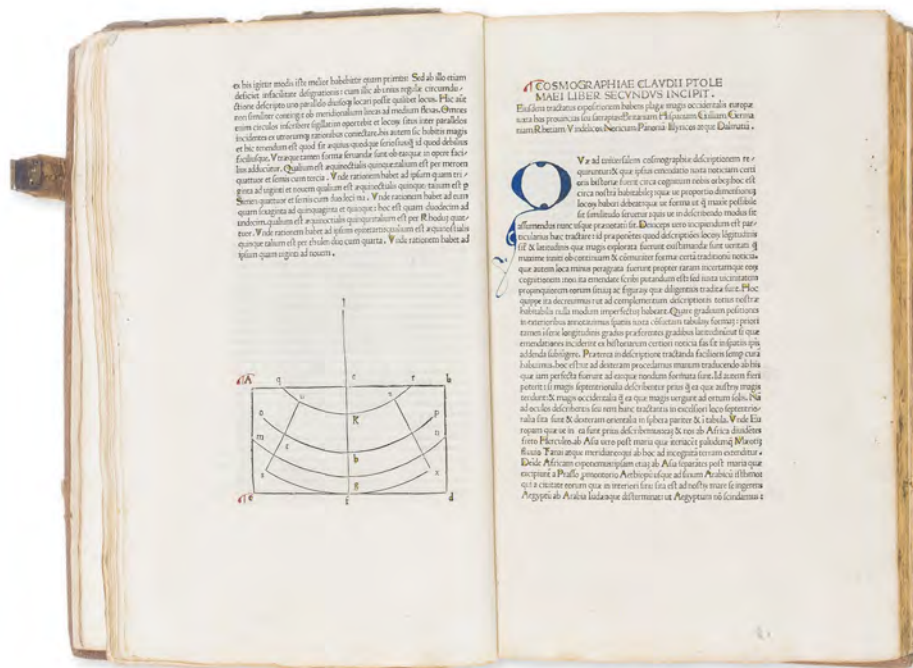 ex his igitur modis iste melior habebitur quam primus: Sed ab illo etiam
deficiet in facilitate designationis: cum illic ab unius regulæ circumdu-
ctione descripto uno parallelo locari possit quilibet locus. Hic
non similiter contingit ob meridionalium lineas ad medium flexas. Omnes
enim circulos inscribere sigillatim oportebit et situs inter parallelos
incidentes ex rationibus coniectare. his autem sic habitis magis
et hic tenendum est quod
facilisque. Utræque tamen formæ servandæ sunt ob eas que in opere faci-
lius adducitur. Qualium est æquinoctialis quinque: talium est per meroen
quattuor et semis cum tercia. Vnde rationem habet ad ipsum quam tri-
ginta ad uiginti et nouem qualium est æquinoctialis quinque: talium est
Senen quattuor et semis cum Vnde rationem habet ad eum
quam sexaginta ad quinquaginta et quinque: hoc est quam duodecim ad
undecim. qualium est æquinoctialis quinque talium est per Rhodum quat-
tuor. Vnde rationem habet ad ipsum qualium est æquinoctialis
quinque talium est per thylem duo cum quarta. Vnde rationem habet ad
ipsum quam uiginti ad nouem.
l
A q e r h
u
o K p
m t b n
s x
g
c i d
COSMOGRAPHIAE CLAVDII PTOLE
MAEI LIBER SECVNDVS INCIPIT.
expositionem habens plagæ magis occidentalis europæ
iuxta has prouincias seu satrapias
Rhetiam Vindelicos Noricum Panonia Illyricos atque Dalmatiā.
QVæ ad uniuersalem cosmographiæ descriptionem re-
quiruntur: & quæ ipsius emendatio iuxta noticiam certi
oris historiæ fuerit circa cognitum nobis orbem hoc est
circa nostra habitabilem: quæ ue proportio dimensionum
locorum haberi debeat: quæ ue forma ut maxie possibile
sit similitudo seruetur: quis ue in describendo modus sit
assumendus nunc usque præmonstratum sit. Deinceps uero incipiendum est par-
ticularius hanc tractare: id præponētes quod descriptiōes locorum lōgitudinis
& latitudinis quæ magis explorata fuerunt existimandæ sunt ueritati
maxime inniti ob continuam & cōmuniter fermæ certā traditionis noticiā.
quæ autem loca minus peragrata fuerunt propter raram incertamque eorum
cognitionem non ita emendate scribi putandum est: sed iuxta uicinitatem
propinquiorem eorum situum ac figurarum quæ diligentius tradita sunt. Hoc
quippe ita decreuimus: ut ad complementum descriptionis totius nostræ
habitabilis nulla modum imperfectum habeant. Quare graduum positiones
in exterioribus annotauimus spatiis iuxta tabularum formam: priori
tamen in serie longitudinis gradus præferentes gradibus latitudinum: si quæ
emendationes inciderint ex historiarum certiori noticia fas sit in spatiis ipis
addenda subiūgere. Præterea in descriptione tractanda faciliori semper cura
habuimus. hoc est: ut ad dexteram procedamus manum traducendo ab his
quæ iam perfecta fuerunt ad ea quæ nondum formata sunt. Id autem fieri
poterit: si magis septentrionalia describentur prius ea quæ austrum magis
tendunt: & magis occidentalia ea quæ magis uergunt ad ortum solis.
ad oculos describentis seu rem hanc tractantis in excelsiori loco septentrio-
nalia sita sunt & dexteram orientalia in sphera pariter & tabula. Vnde Eu
ropam quæ ue in ea sunt prius describemus: & nos ab Africa diuidētes
freto Herculeo ab Asia uero post maria quæ interiacet paludemque Mæotim
fluuio Tanai atque meridiano: qui ab hoc ad incognitā terram extenditur.
Deīde Africam exponemus: ipsam etiam ab Asia separātes post maria quæ
excipiunt a Prasso promontorio Aethiopum usque ad sinum Arabicū: isthmo
qui a ciuitate eorum quæ in interiori sinu sita est ad nostrum mare se ingerens
Aegyptum ab Arabia Iudæaque disterminat: ut Aegyptum nō scindamus: